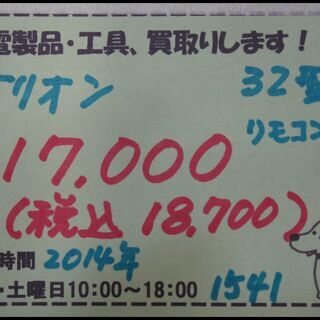 電製品・工具、買取りします!
オリオン 32型
リモコン
17,000
(税込 18,700)
時間 2014年
・土曜日10:00〜18:00 1541